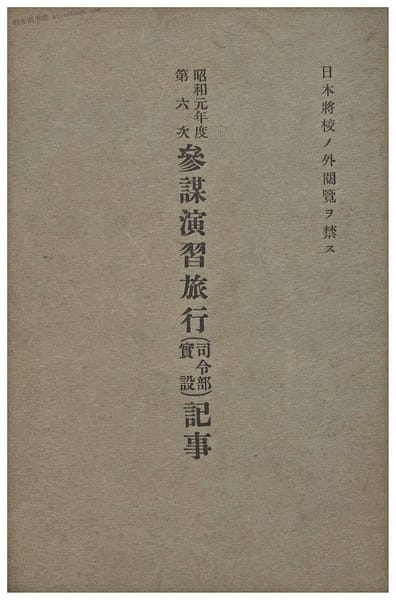 日本將校ノ外閱覽ヲ禁ス
昭和元年度
第六次
參謀演習旅行(司令部實設)記事